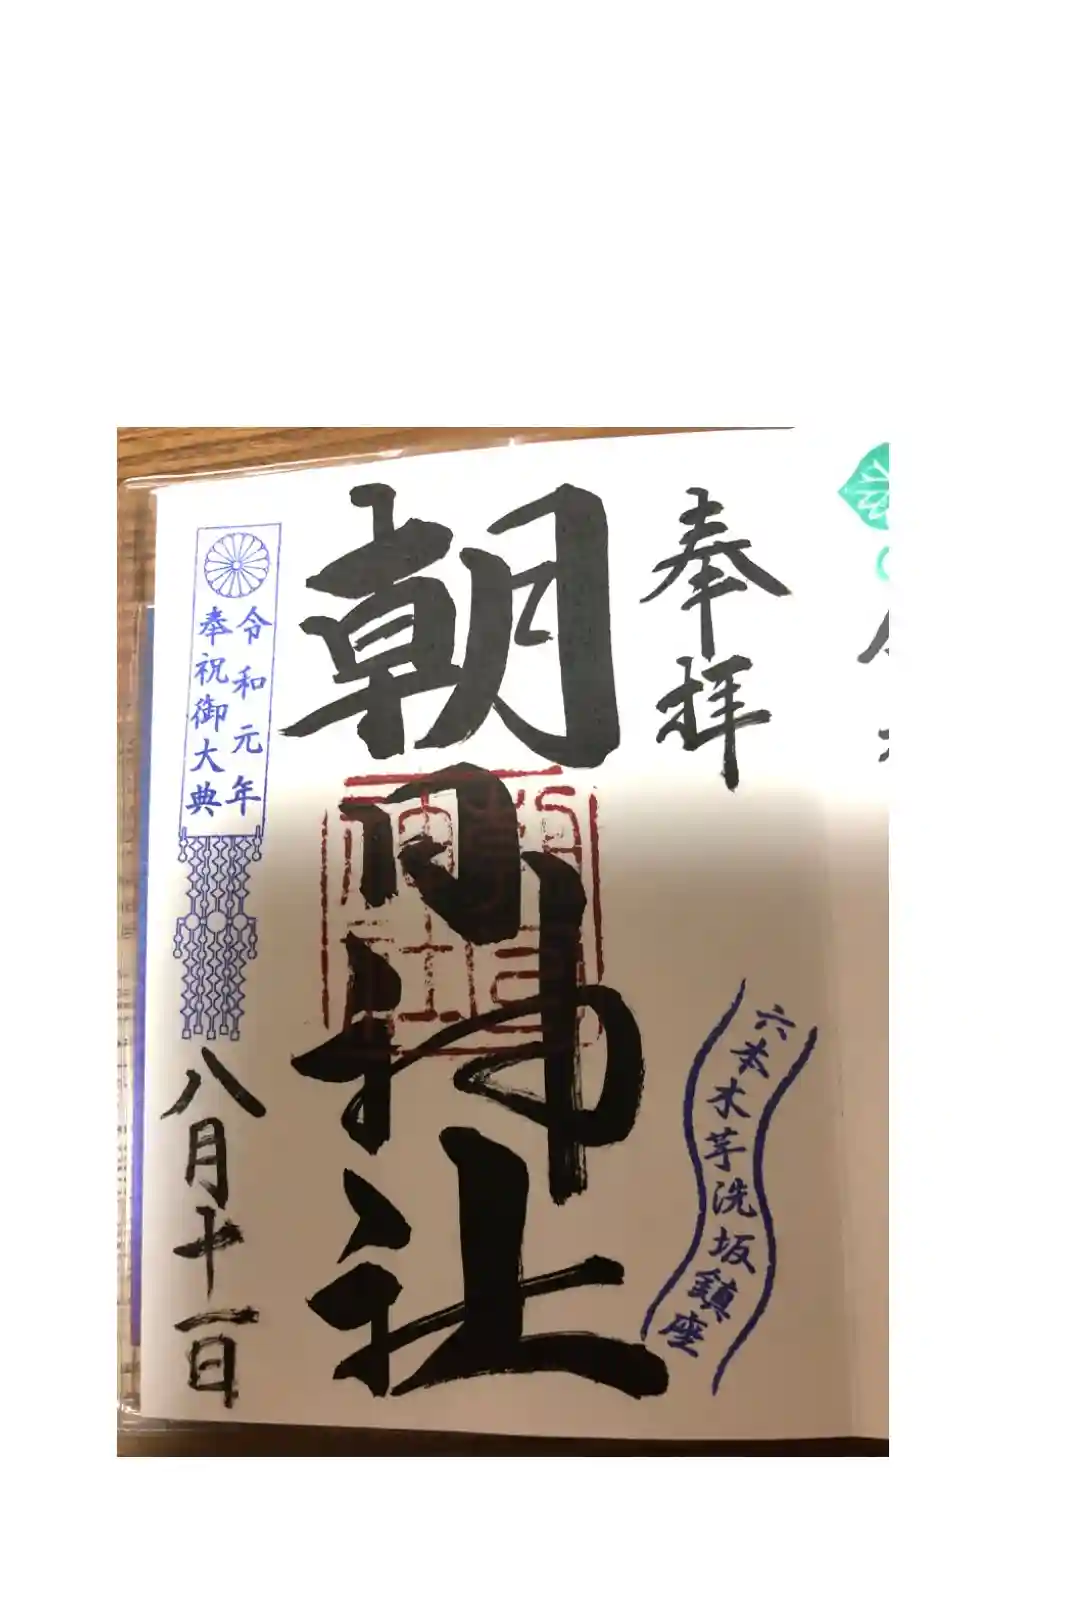 奉拝
六本木芋洗坂鎮座
朝日神社
令和元年
奉祝御大典
八月十一日